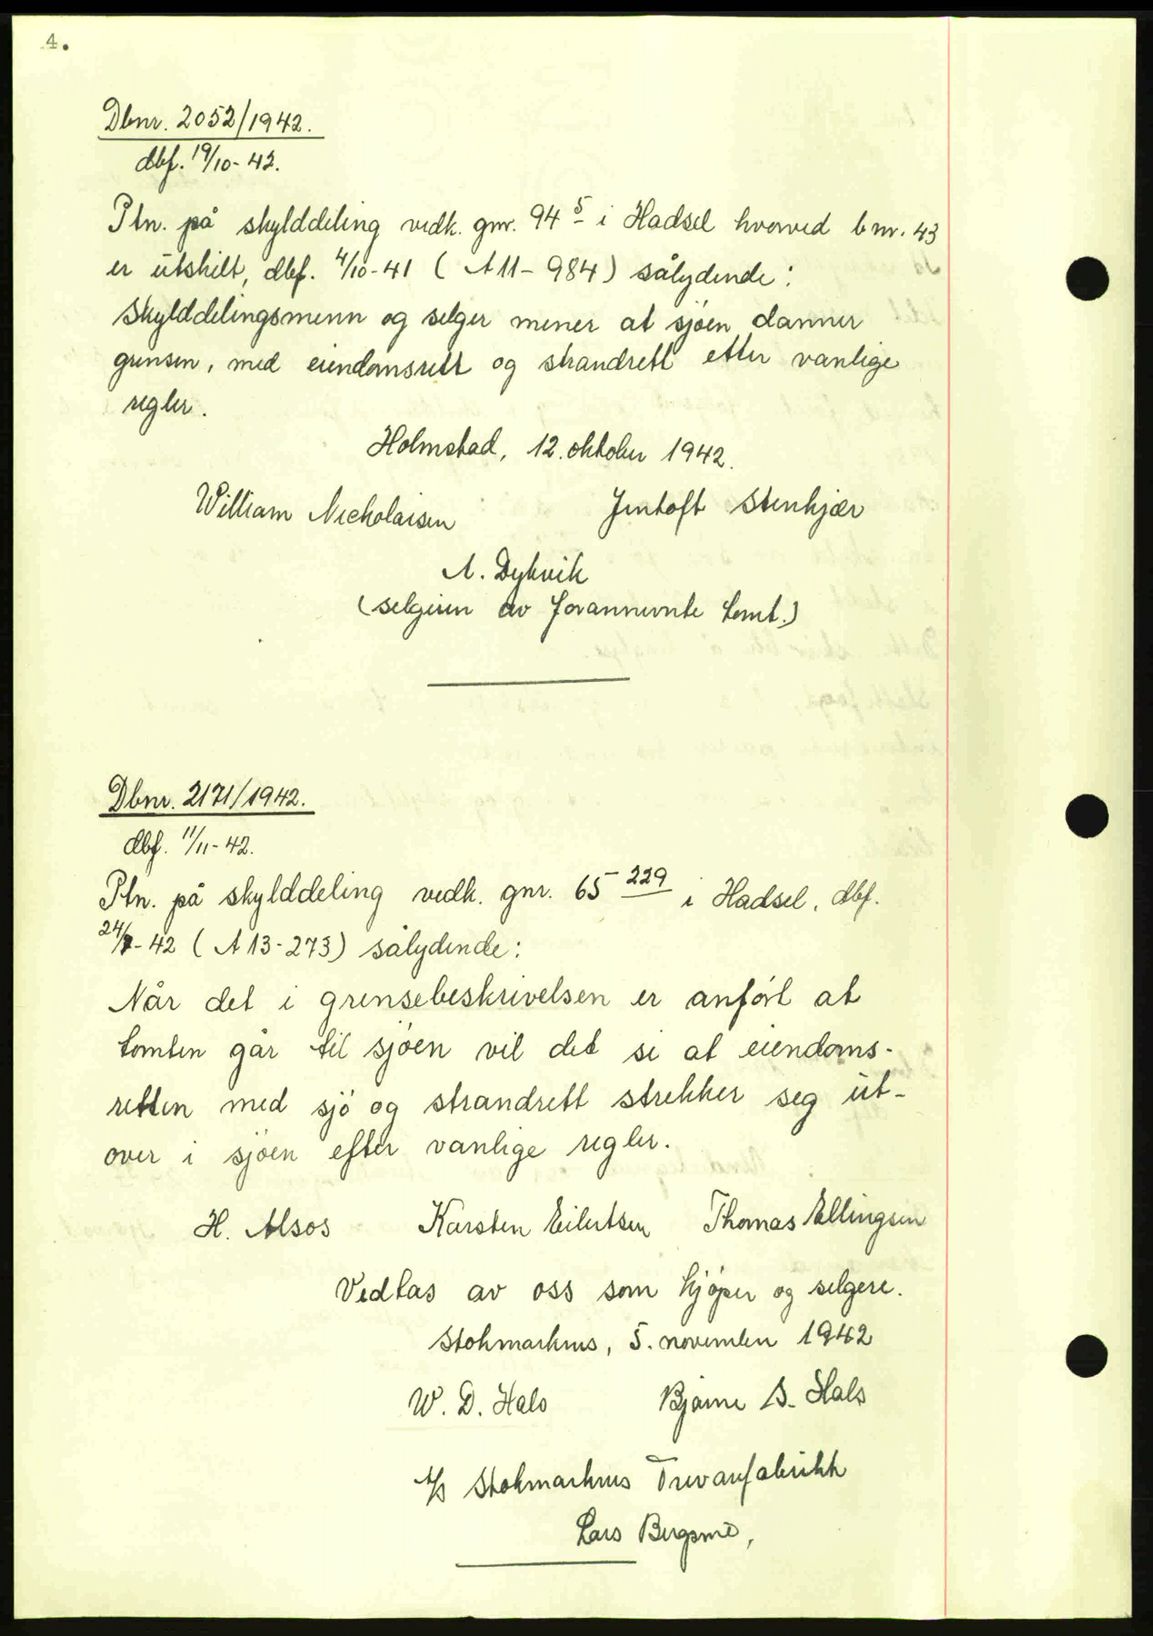 4.
Dbnr. 2052/1942.
dbf. 19/10-42.
Ptn. på skylddeling vedk. gnr. 94 5 i Hadsel hvorved bnr. 43
er utskilt, dbf. 4/10-41 ( A 11 - 984) sålydende:
Skylddelingsmenn og selger mener at sjøen danner
grensen, med eiendomsrett og strandrett etter vanlige
regler.
Holmstad, 12. oktober 1942.
William Nicholaisen Jentoft Steinkjær
A. Dykvik
(selgeren av forannevnte tomt.)
Dbnr. 2171/1942.
dbf. 11/11-42.
Ptn. på skylddeling vedk. gnr. 65 229 i Hadsel, dbf.
24/7-42 ( A 13-273) sålydende:
Når det i grensebeskrivelsen er anført at
tomten går til sjøen vil det si at eiendoms-
retten med sjø og strandrett strekker seg ut-
over i sjøen efter vanlige regler.
H. Alsos Karsten Eilertsen Thomas Ellingsen
Vedtas av oss som kjøper og selgere.
Stokmarknes, 5. november 1942
W. D. Hals Bjarne D. Hals
A/S Stokmarknes Trevarefabrikk
Lars Bergsmo,